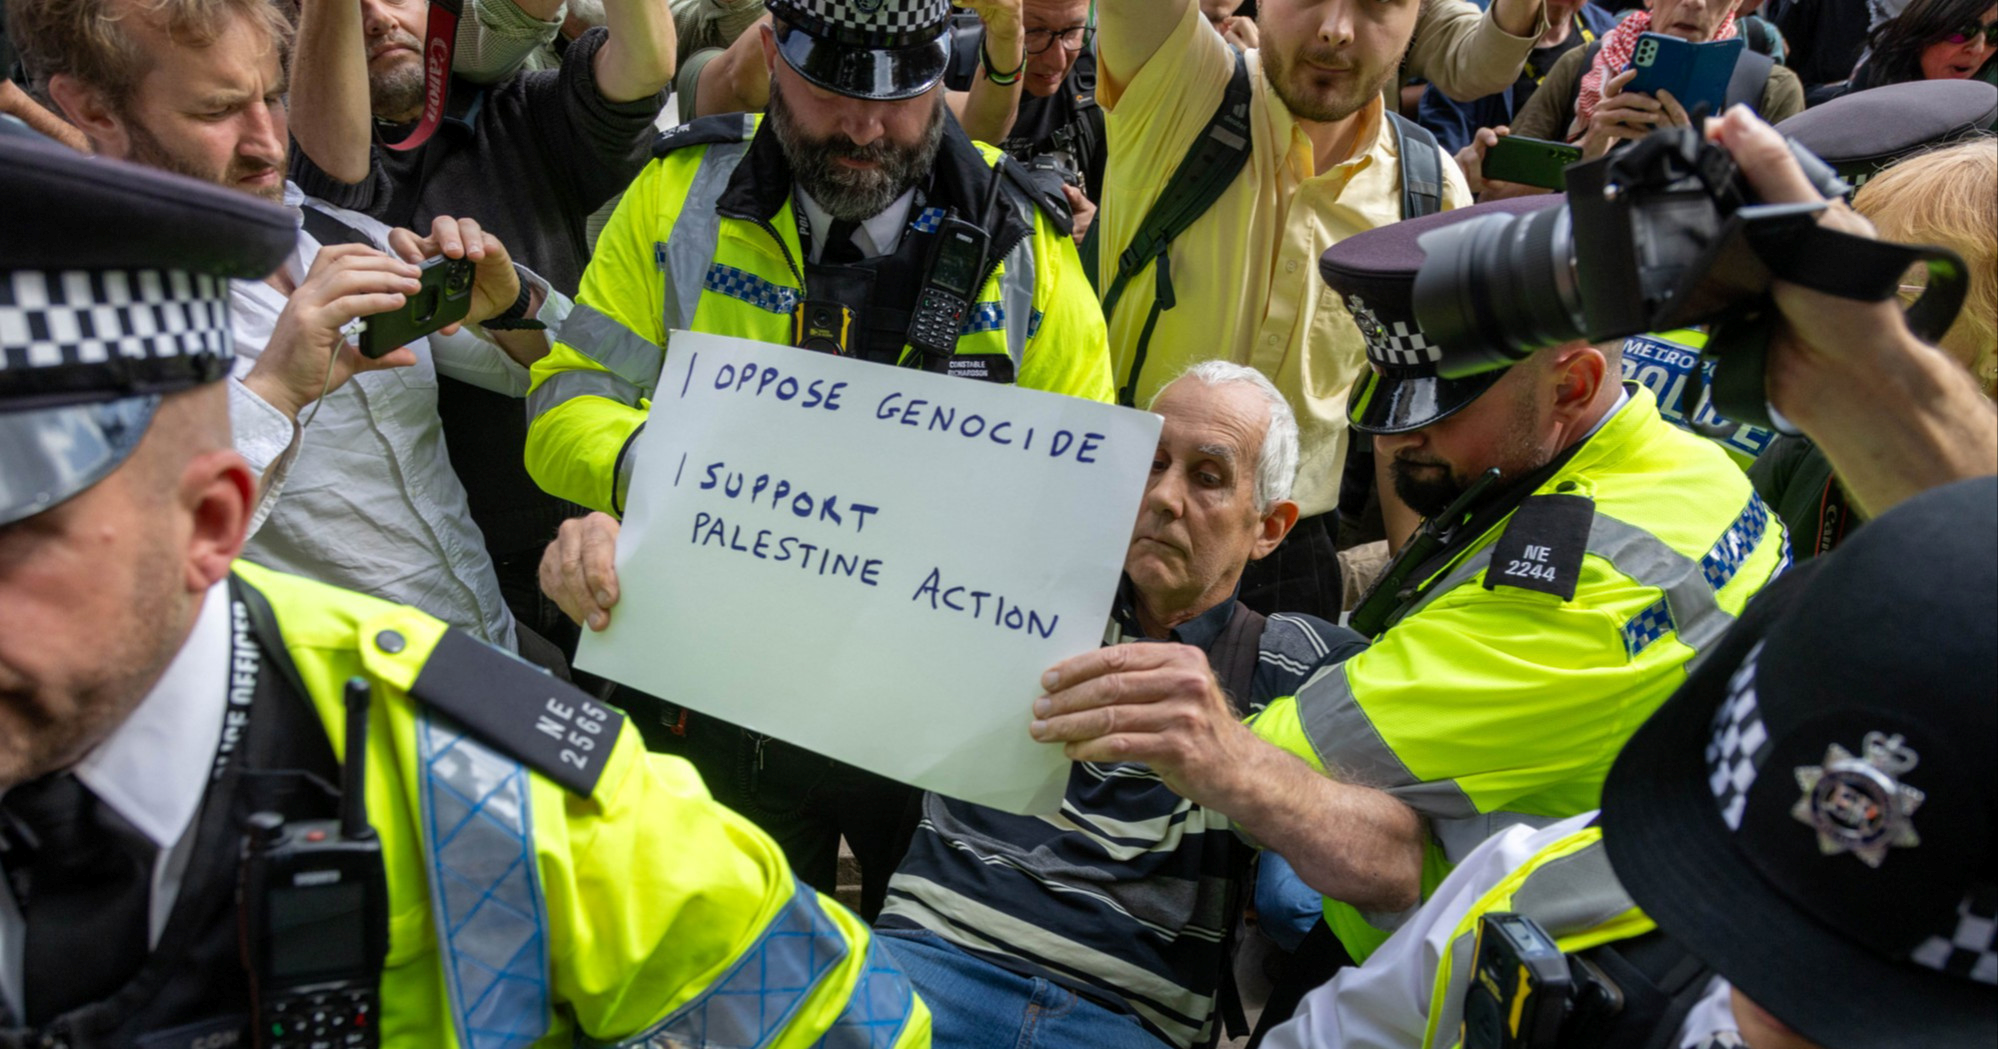 Canon
I OPPOSE GENOCIDE
I SUPPORT
PALESTINE ACTION
CONSTABLE
RICHARDSON
METROPO
POLICE
NE
2244
NE
2565